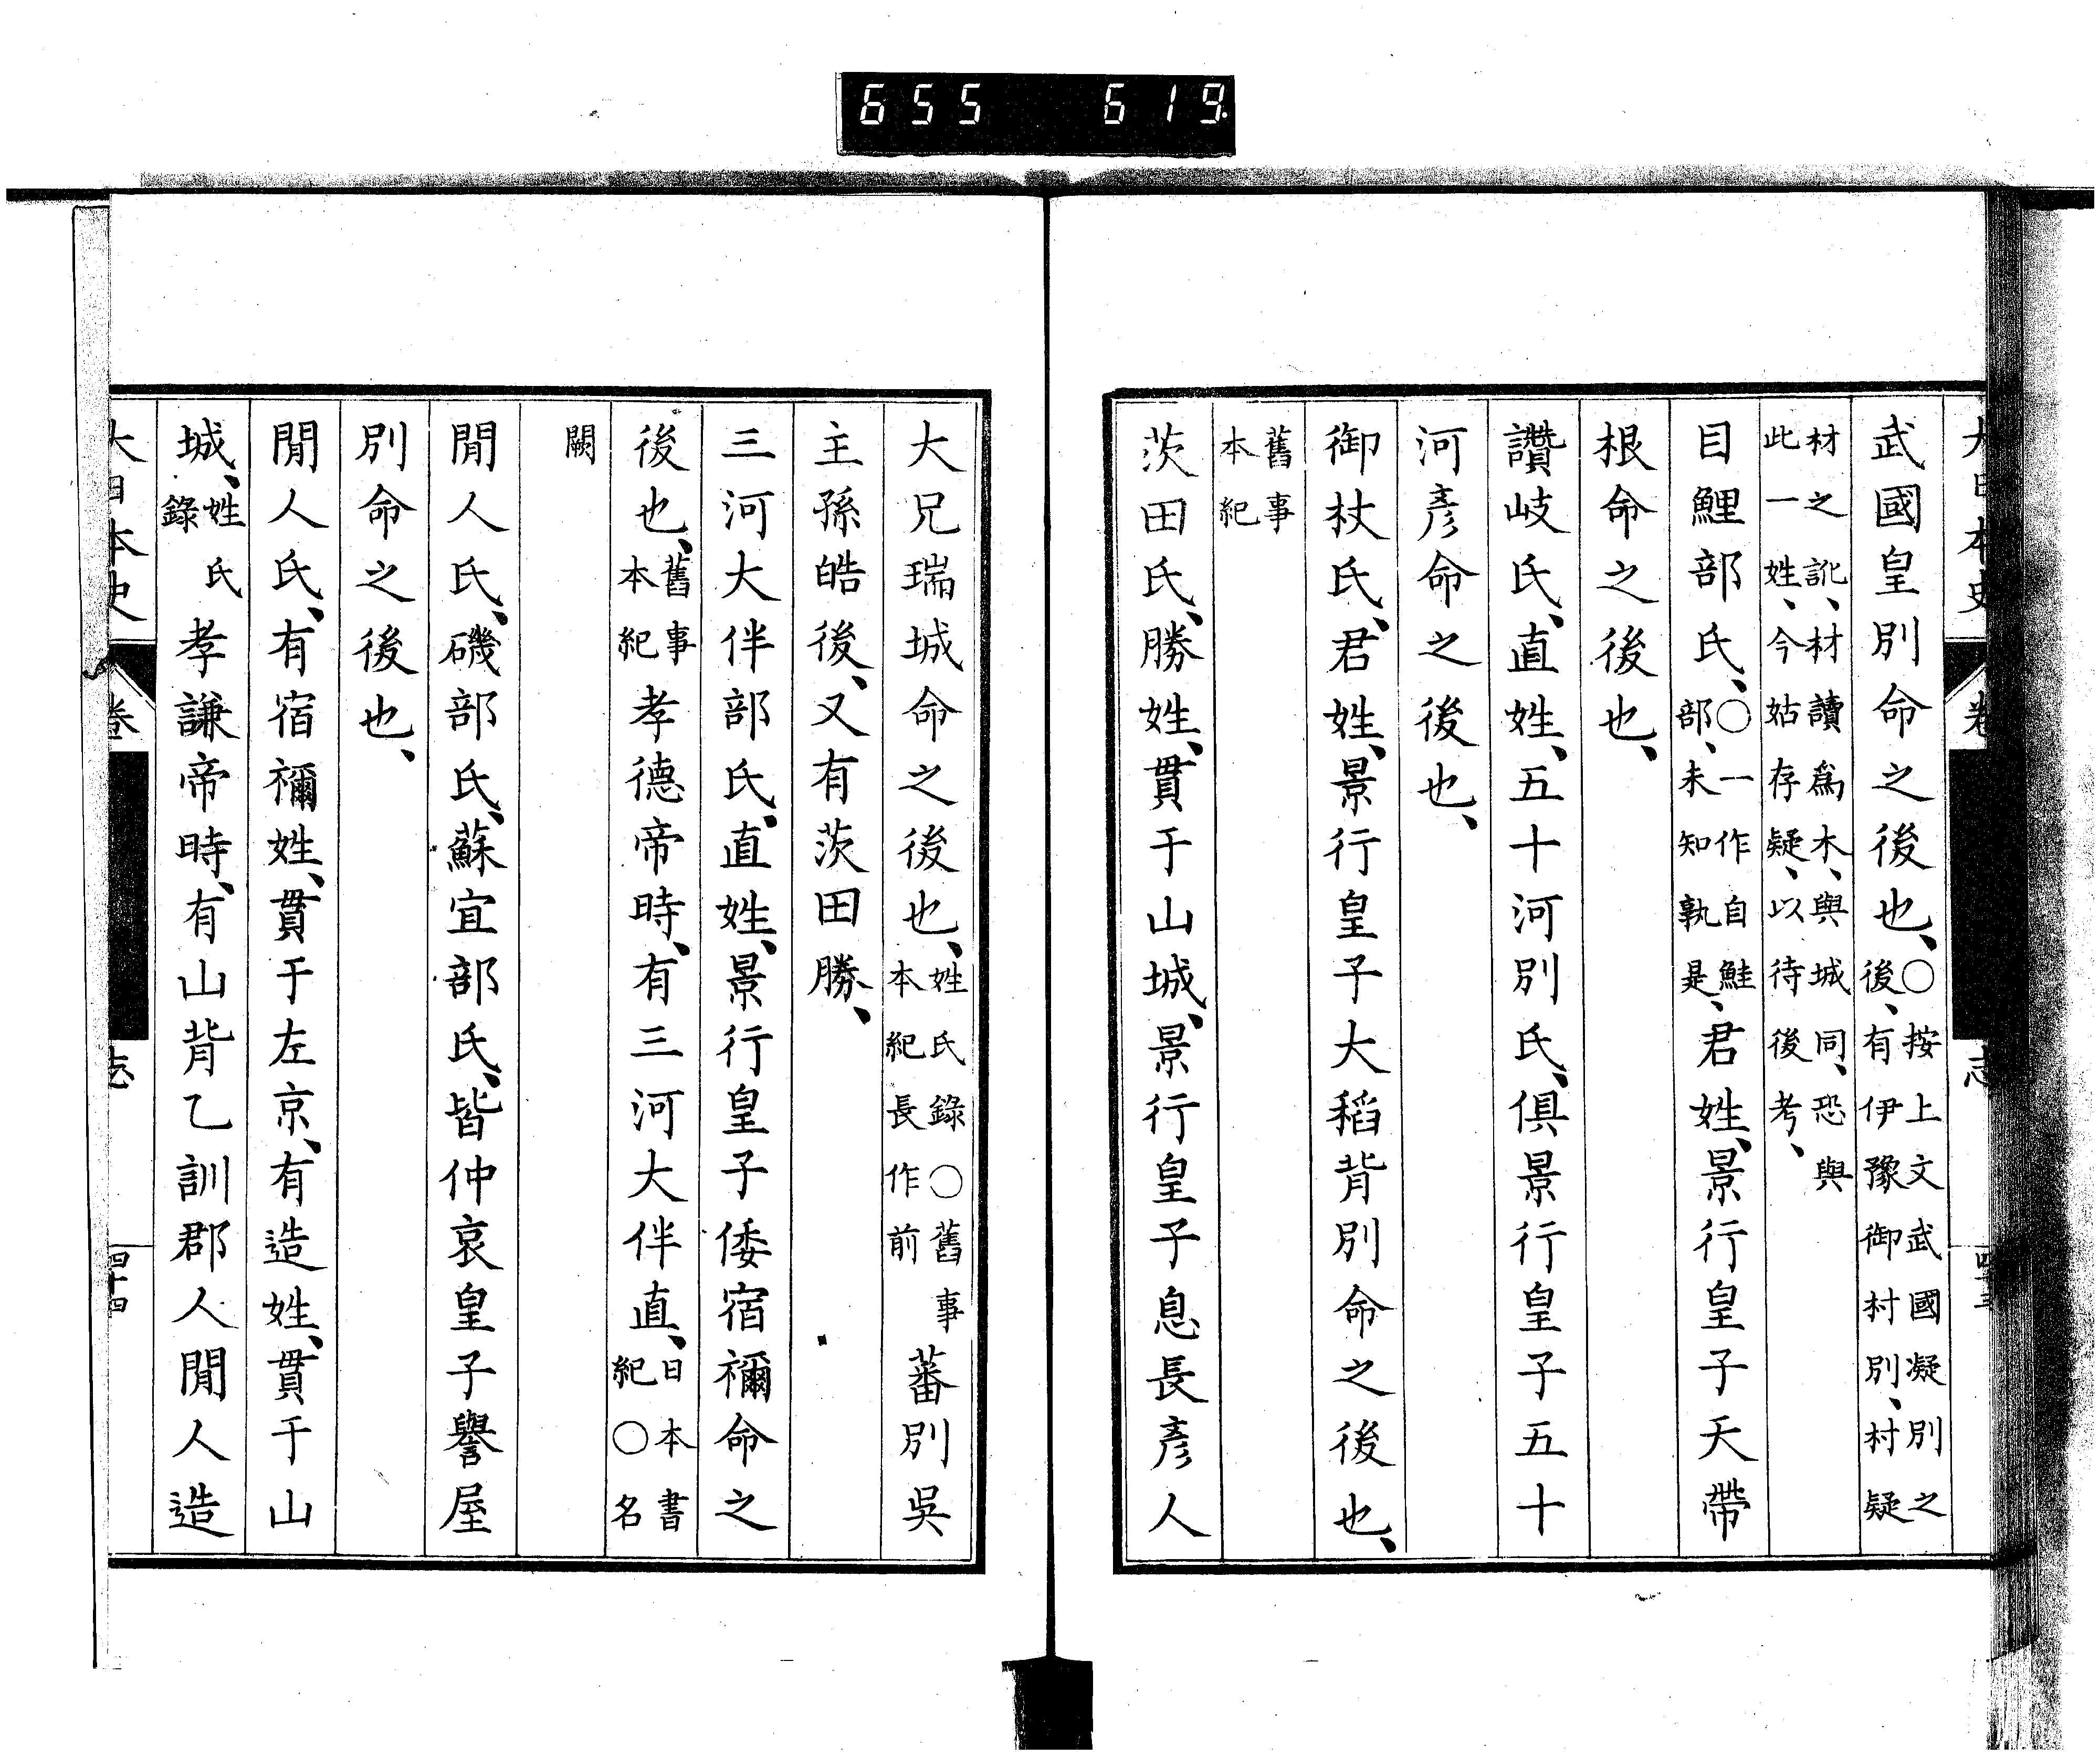 655 619
大日本史 卷 志
武國皇別命之後也、○按上文武國凝別之後、有伊豫御村別、村疑
材之訛、材讀爲木、與城同、恐與此一姓、今姑存疑、以待後考、
目鯉部氏、○一作自鮭部、未知孰是、君姓、景行皇子天帶
根命之後也、
讚岐氏、直姓、五十河別氏、俱景行皇子五十
河彥命之後也、
御杖氏、君姓、景行皇子大稻背別命之後也、
舊事本紀
茨田氏、勝姓、貫于山城、景行皇子息長彥人
大兄瑞城命之後也、姓氏錄○舊事本紀長作前蕃別吳
主孫皓後、又有茨田勝、
三河大伴部氏、直姓、景行皇子倭宿禰命之
後也、舊事本紀孝德帝時、有三河大伴直、日本書紀○名
闕
閒人氏、磯部氏、蘇宜部氏、皆仲哀皇子譽屋
別命之後也、
閒人氏、有宿禰姓、貫于左京、有造姓、貫于山
城、姓氏錄孝謙帝時、有山背乙訓郡人閒人造
大日本史 卷 志 四十四